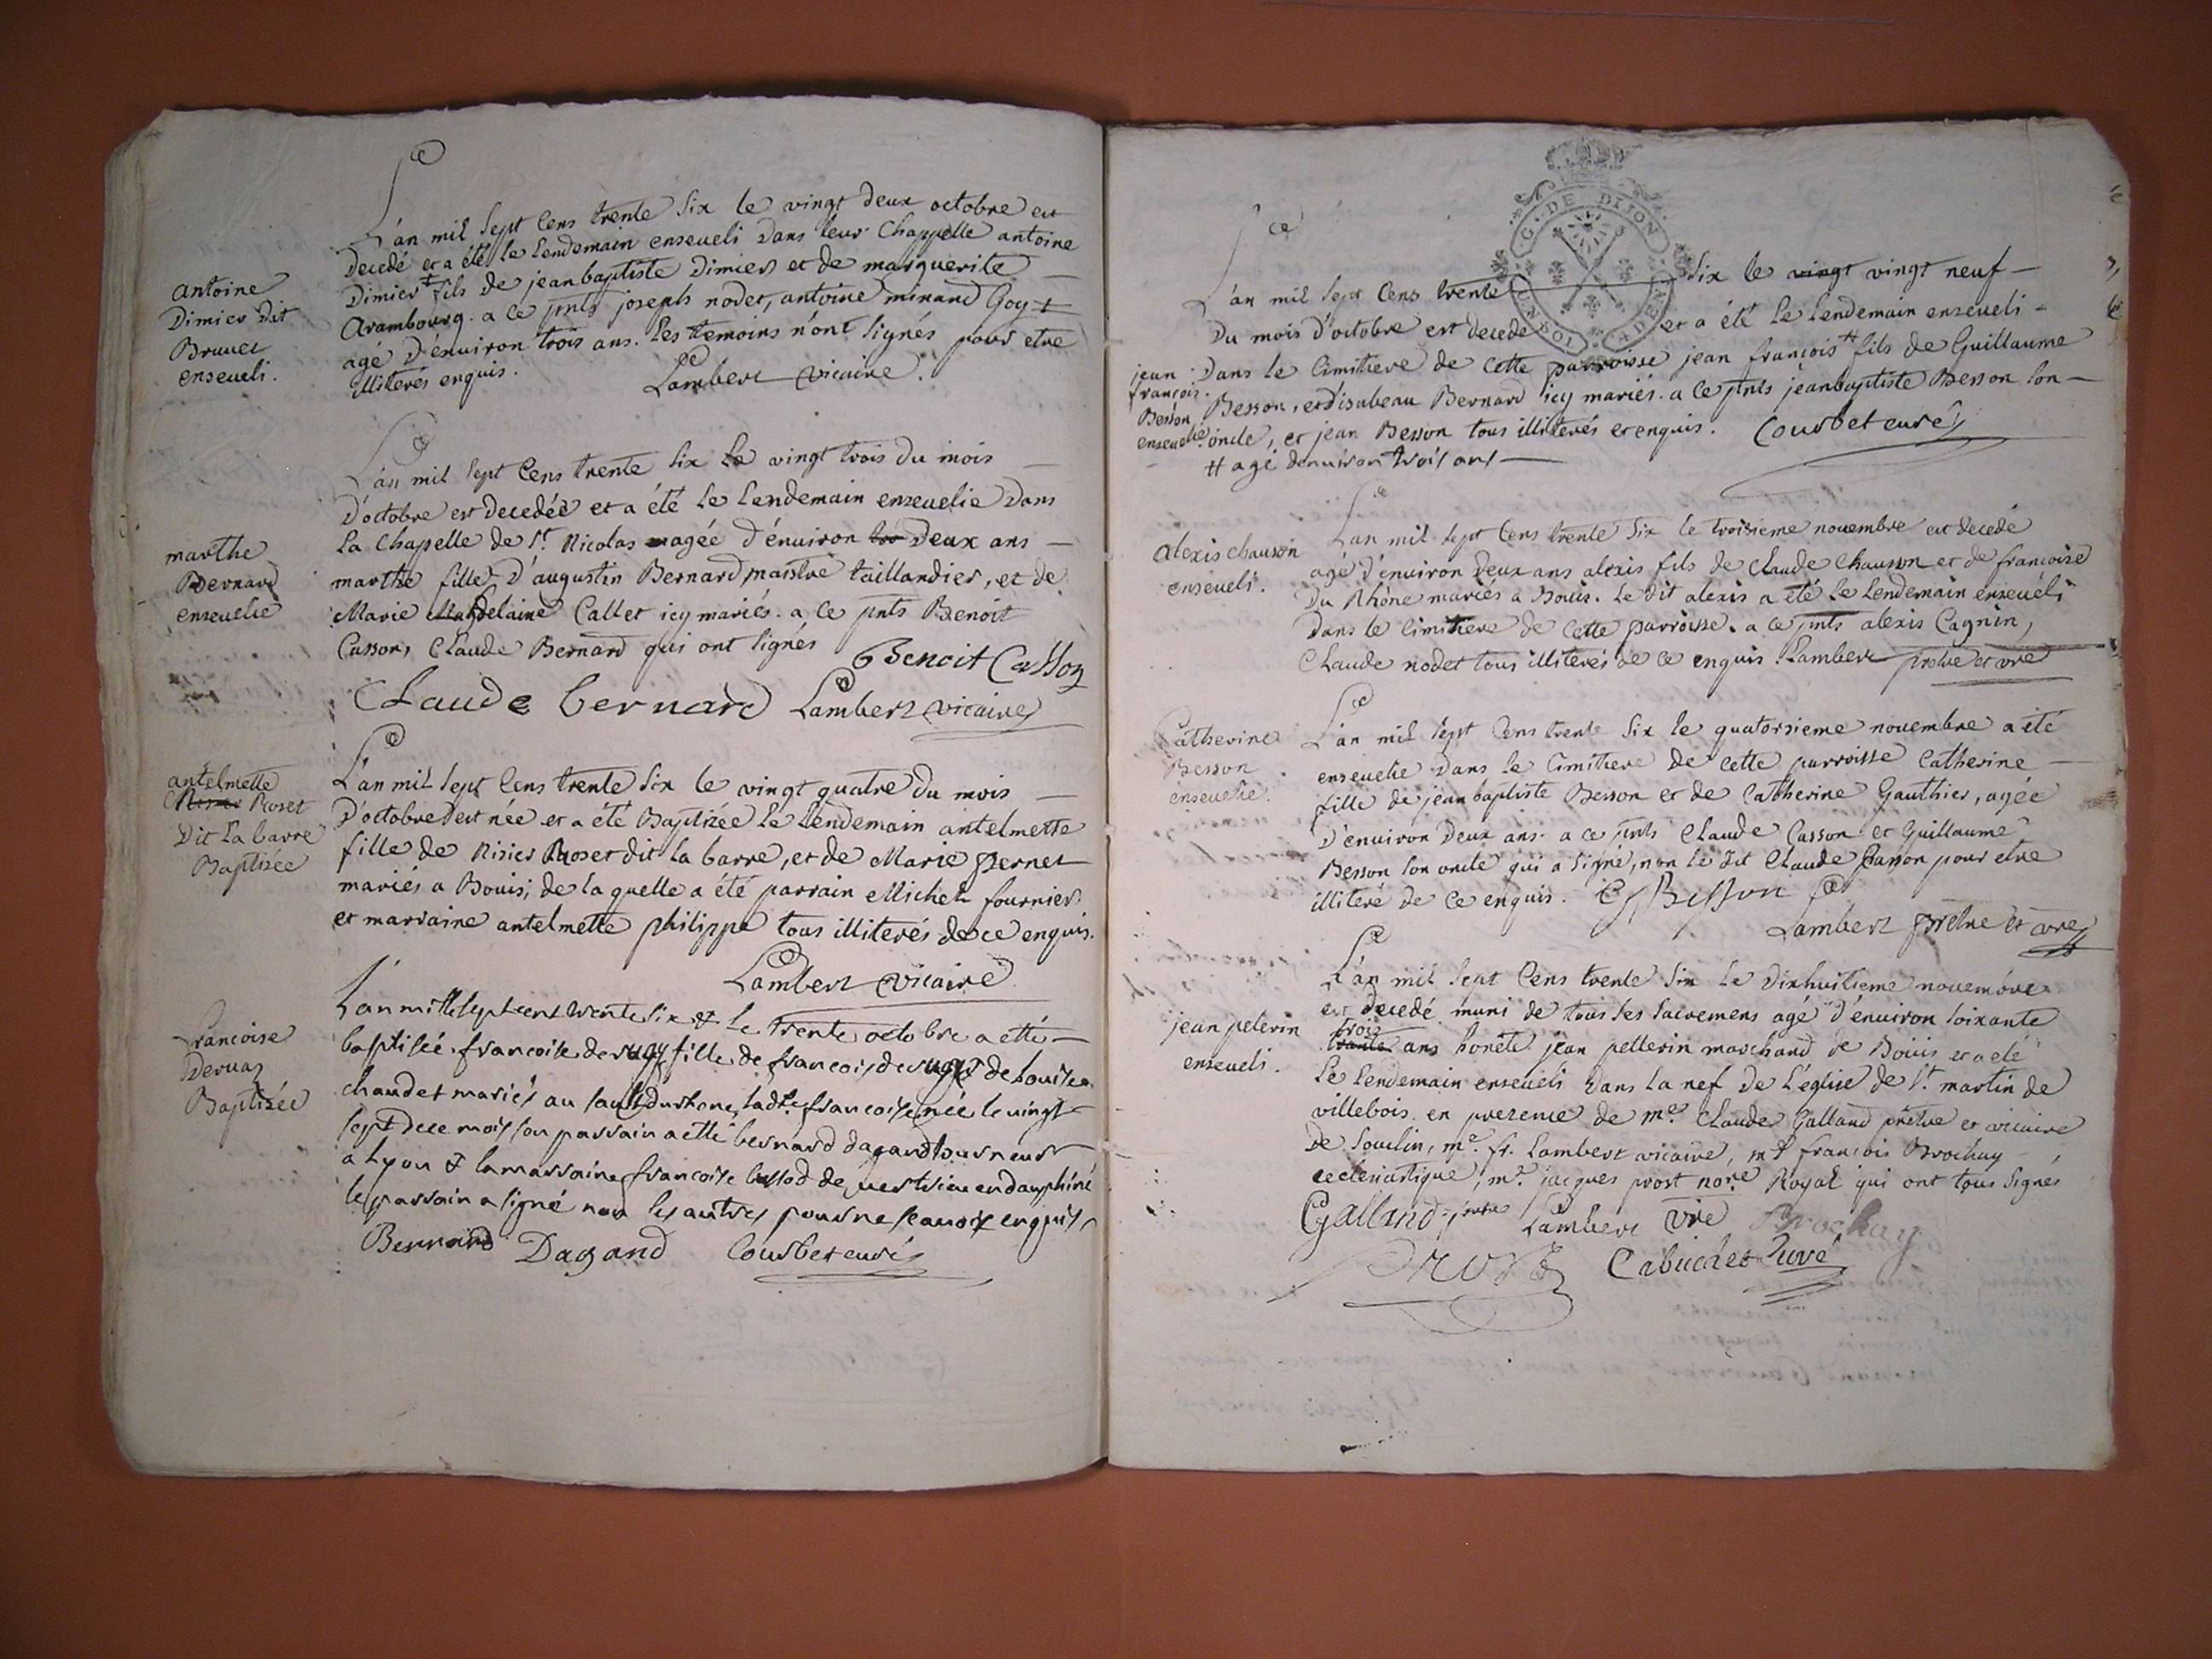 L'an mil sept cens trente six le vingt deux octobre est
decedé et a été le lendemain enseveli dans leur chappelle antoine
Dimier + fils de jean baptiste Dimier et de marguerite
Arambourg. a ce pnts joseph nodet, antoine minand Goy +
agé d'environ trois ans. les temoins n'ont signés pour etre
illiterés enquis.
Lambert vicaire.
antoine
Dimier dit
Brunet
enseveli.
L'an mil sept cens trente six le vingt trois du mois
d'octobre est decedée et a été le lendemain ensevelie dans
la chapelle de st. Nicolas agée d'environ deux ans
marthe fille d'augustin Bernard maistre taillandier, et de
Marie Magdelaine Callet icy mariés. a ce pnts Benoit
Casson, Claude Bernard qui ont signés
Benoit Casson
Claude bernard Lambert vicaire
marthe
Bernard
ensevelie
L'an mil sept cens trente six le vingt quatre du mois
d'octobre est née et a été Baptizée le lendemain antelmette
fille de Nisier Roset dit la barre, et de Marie pernet
mariés a Bouis; de laquelle a été parrain Michel fournier
et marraine antelmette philippe tous illiterés de ce enquis.
Lambert vicaire
antelmette
Roset
dit la barre
Baptizée
L'an mille sept cent trente six & le trente octobre a etté
baptisée francoise dervuy fille de francois dervuy & de louise
chaudet mariés au sault du rhone, ladte francoise née le vingt
sept de ce mois son parrain a etté bernard dagand tourneur
a Lyon & la marraine francoise de vertrieu en dauphiné
le parrain a signé non les autres pour ne scavoir enquis
Bernard Dagand Courbet curé
francoise
Dervuaz
Baptizée
L'an mil sept cens trente six le vingt vingt neuf
du mois d'octobre est decede et a été le lendemain enseveli
dans le cimitiere de cette parroisse jean francois # fils de Guillaume
Besson, et d'isabeau Bernard icy mariés. a ce pnts jean baptiste Besson son
oncle, et jean Besson tous illiterés et enquis. Courbet curé
# agé denviron trois ans
jean
francois
Besson
enseveli
G. DE DIJON
L'an mil sept cens trente six le troisieme novembre est decedé
agé d'environ deux ans alexis fils de claude chauson et de francoise
du Rhône mariés a Bouis. le dit alexis a été le lendemain enseveli
dans le cimitiere de cette parroisse. a ce pnts alexis Cagnin,
Claude nodet tous illiterés de ce enquis. Lambert pretre et vre
alexis chauson
enseveli.
L'an mil sept cens trente six le quatorsieme novembre a été
ensevelie dans le Cimitiere de cette parroisse Catherine
fille de jean baptiste Besson et de Catherine Gauthier, agée
d'environ deux ans. a ce pnts Claude Casson et Guillaume
Besson son oncle qui a signé, non le dit Claude Casson pour etre
illiteré de ce enquis. G Besson
Lambert pretre et vre
Catherine
Besson
ensevelie.
L'an mil sept cens trente six le dixhuitieme novembre
est decedé muni de tous les sacremens agé d'environ soixante
trois
trante ans honête jean pellerin marchand de Bouis et a été
le lendemain enseveli dans la nef de l'église de st. martin de
villebois en presence de me. Claude Galland prêtre et vicaire
de Souclin, me. fr. Lambert vicaire, mr francois Brochay
ecclesiastique, me. jacques prost nore Royal qui ont tous signés
Galland Lambert vre Brochay
Prost Cabuchet curé
jean pelerin
enseveli.